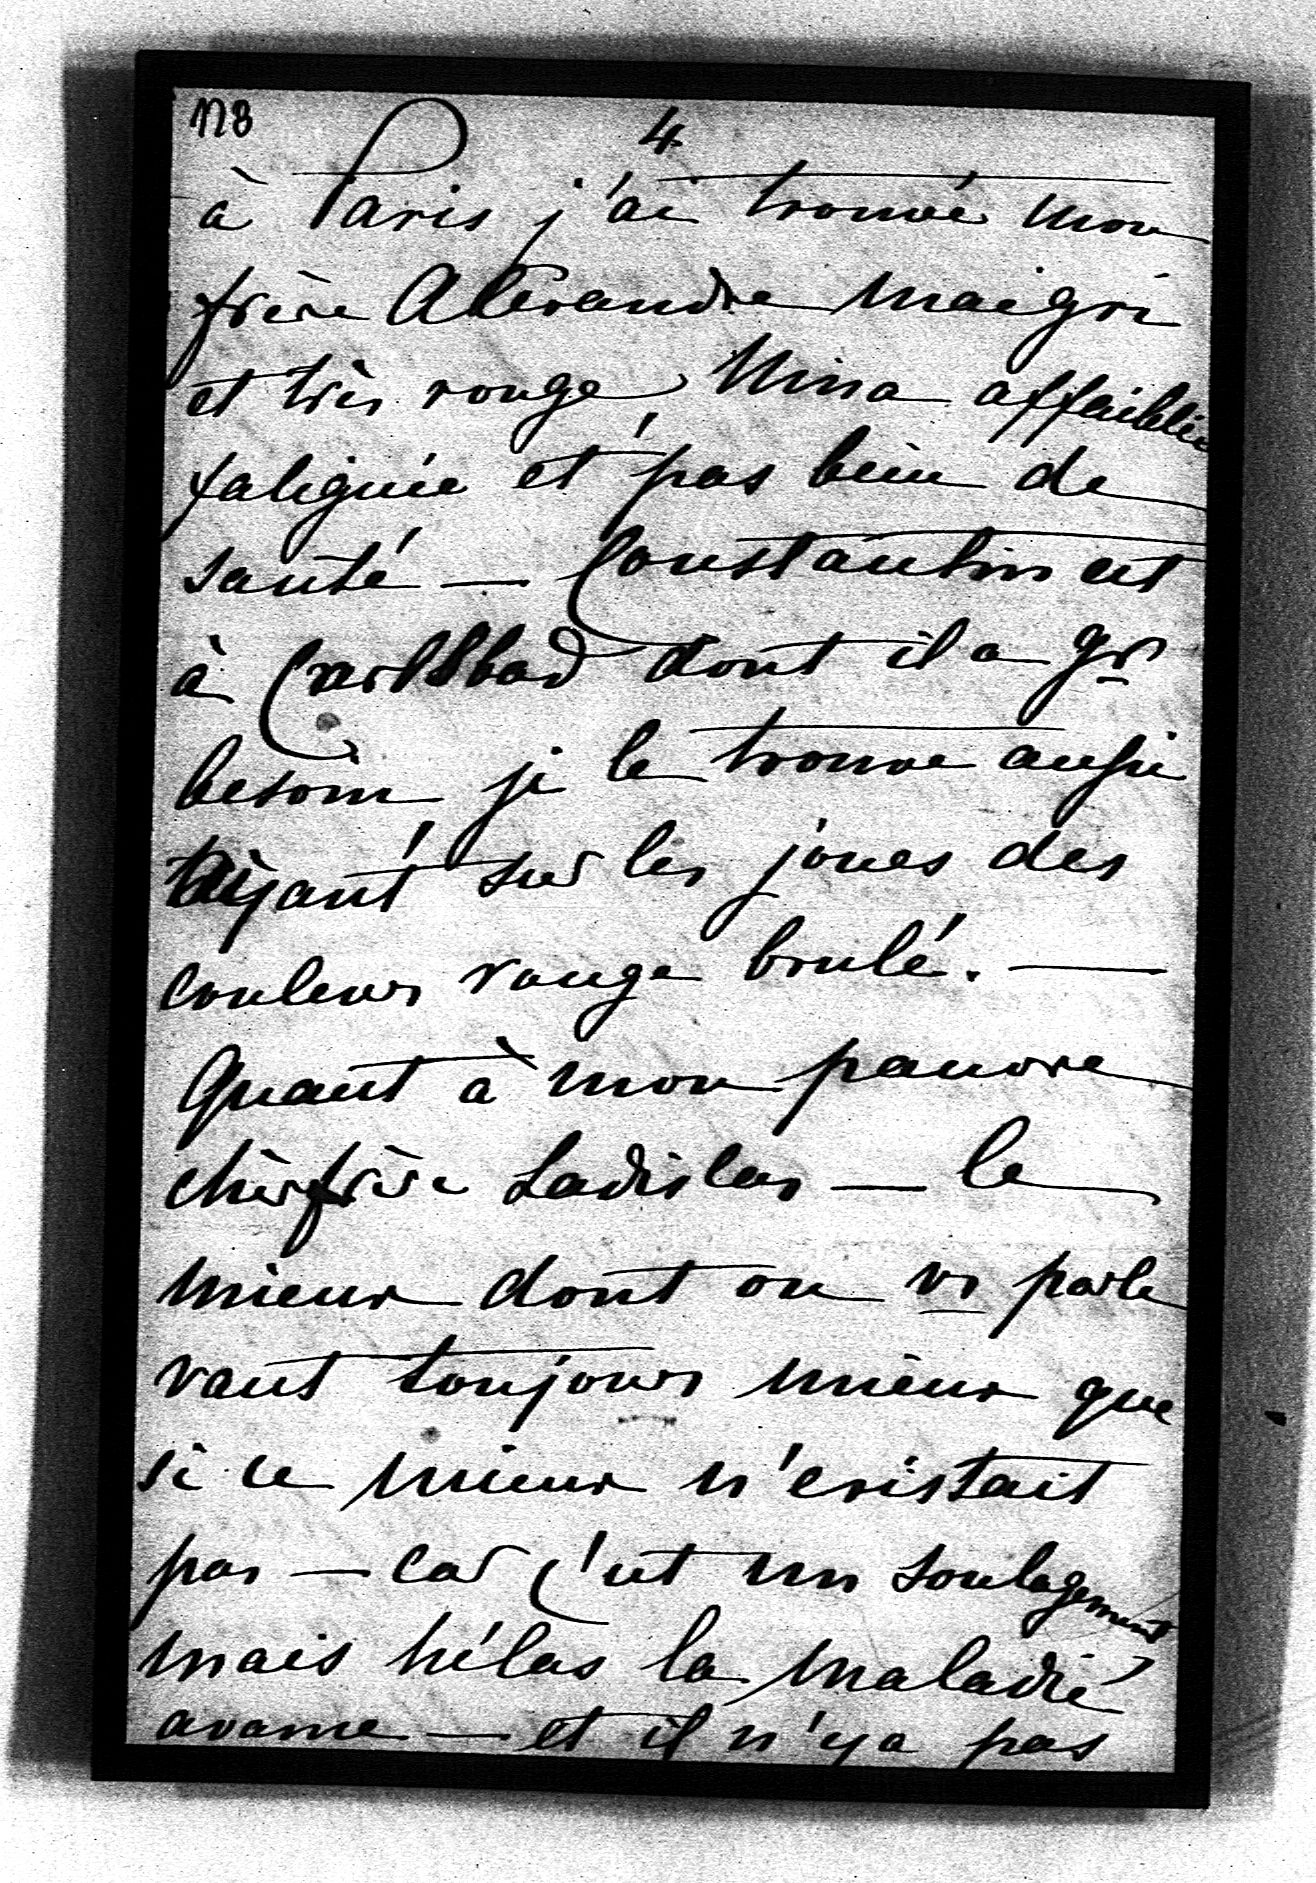 178
4
à Paris j'ai trouvé mon
frère Alexandre maigri
et très rouge Nina affaiblie
fatiguée et pas bien de
santé — Constantin est
à Carlsbad dont il a gr
besoin je le trouve aussi
ayant sur les joues des
couleurs rouge brulé. —
Quant à mon pauvre
cher frère Ladislas — le
mieux dont on vs parle
vaut toujours mieux que
si ce mieux n'existait
pas — car c'est un soulagement
mais hélas la maladie
avance — et il n'y a pas